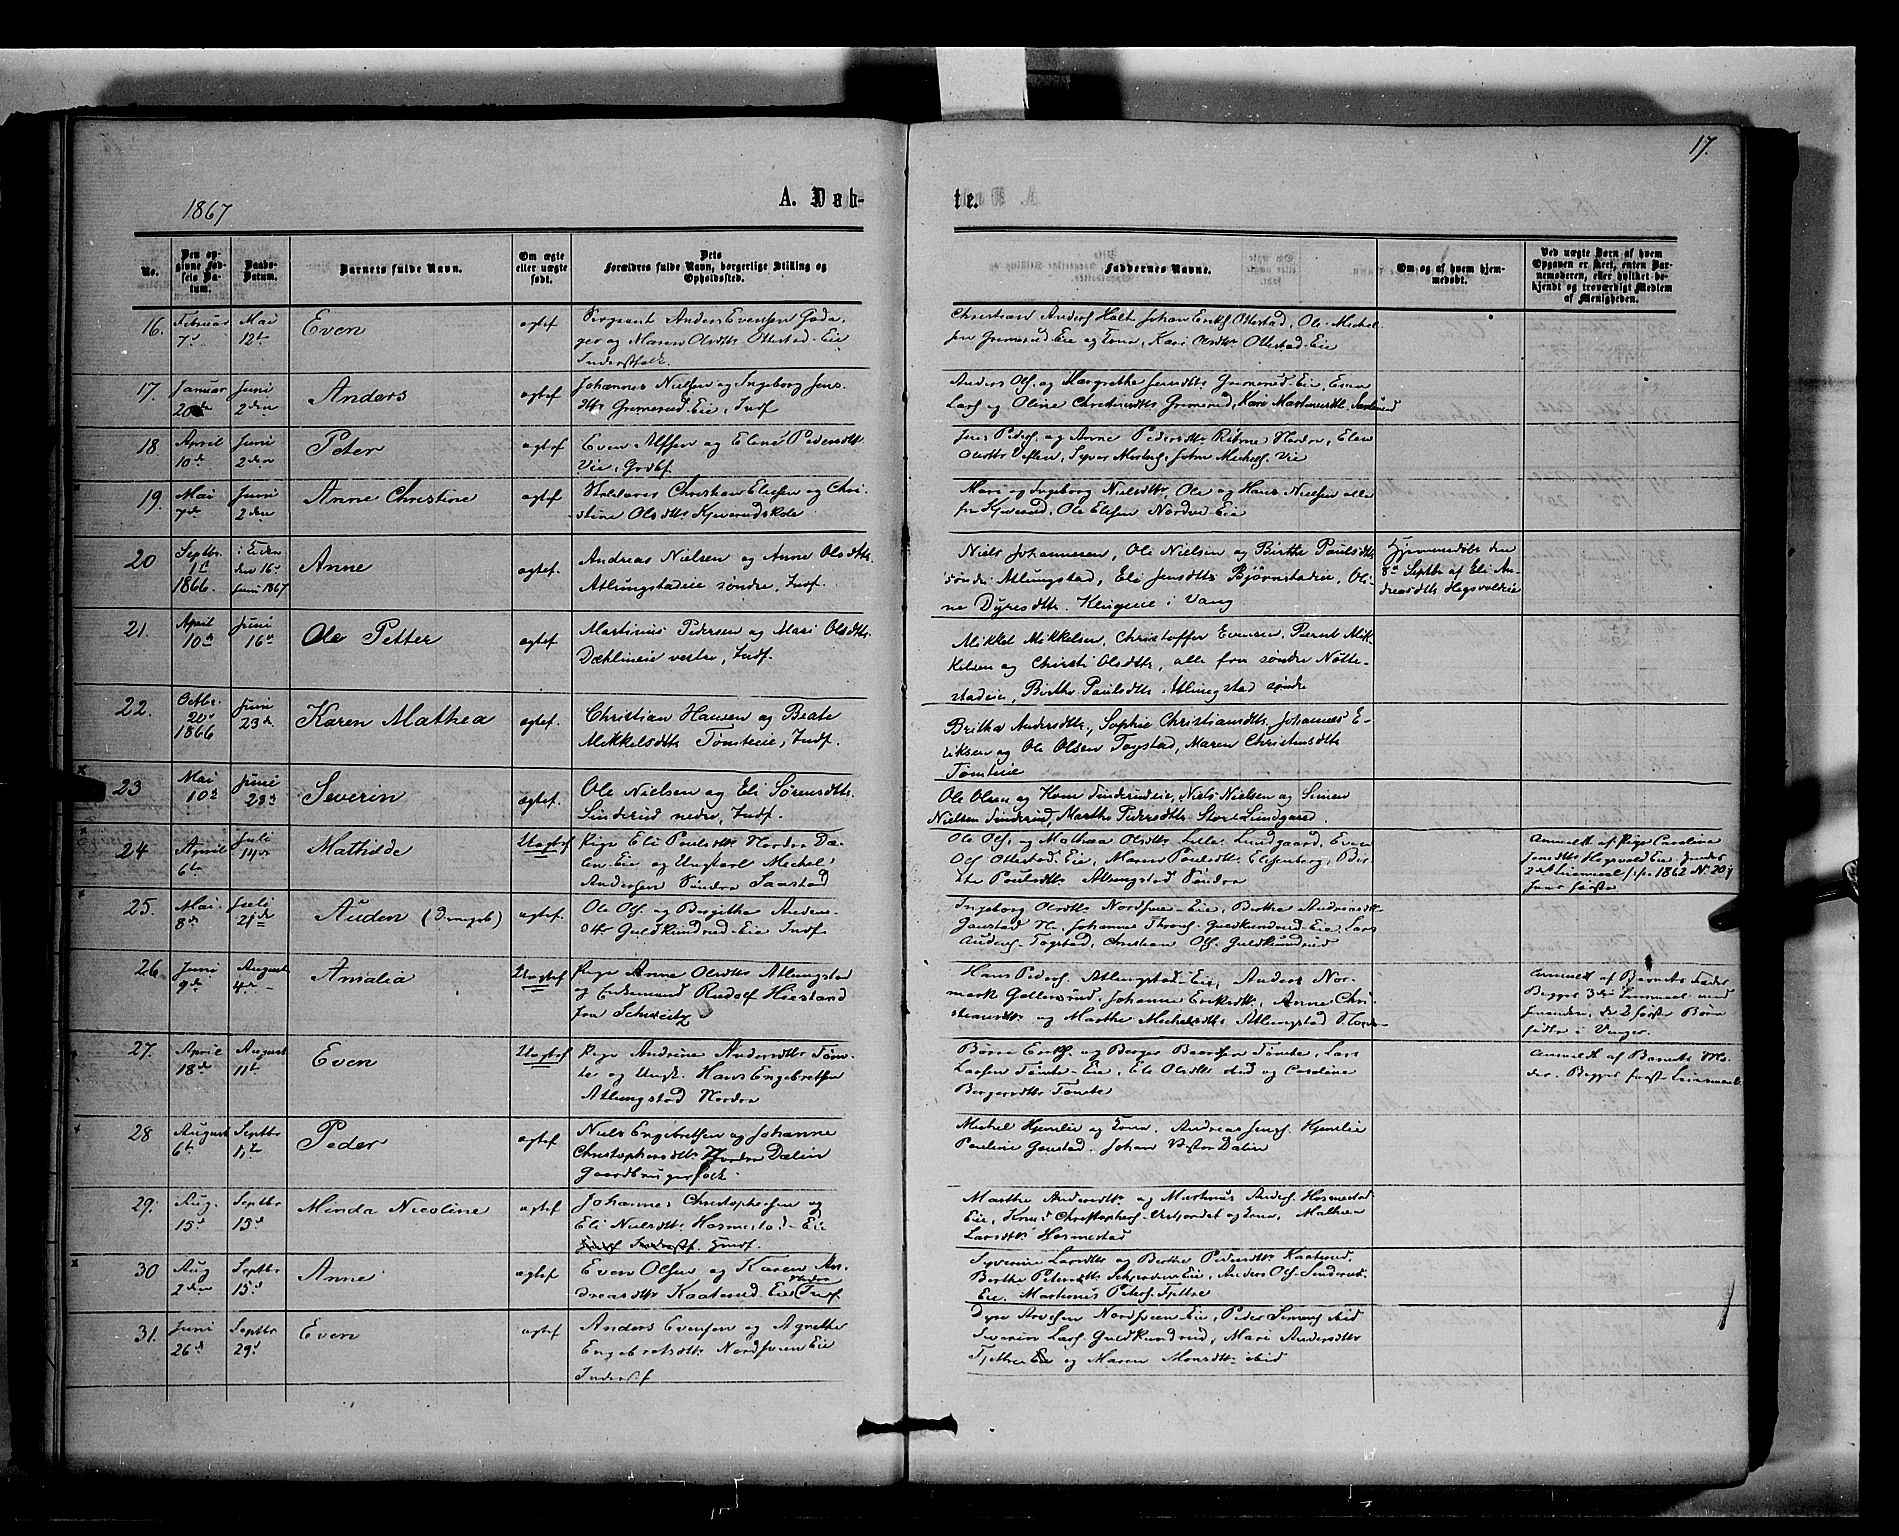 17.
1867
A. Døb-
te.
No.
Den opgivne Fødsels Datum.
Daabs-Datum.
Barnets fulde Navn.
Om ægte eller uægte født.
Dets Forældres fulde Navn, borgerlige Stilling og Opholdssted.
Faddernes Navne.
Om og af hvem hjemmedøbt.
Ved uægte Børn af hvem Opgaven er skeet, enten Barnemoderen, eller hvilket bekjendt og troværdigt Medlem af Menigheden.
16. Februar 7d Mai 12te Even ægtef Sergeant Anders Evensen
og Maren Olsdtr Ottestad-Eie
Inderstfolk
Christian Anders Holt Johan Ericks Ottestad, Ole Michel-
sen Gremerud-Eie og Kone, Kari Olsdtr Ottestad-Eie
17. Januar 20de Juni 2den Anders ægtef Johannes Nielsen og Ingeborg Jens-
dtr Gremerud-Eie, Indf
Anders Ols. og Margrethe Jensdtr Gremerud-Eie, Even
Lars og Oline Christiansdtr Gremerud, Kari Martinusdtr
18. April 10de Juni 2den Peter ægtef Even Alfsen og Eline Pedersdtr
Vie, Grdbf
Jens Peders. og Anne Pedersdtr Nordre, Elen
Olsdtr Johan Michels. Vie
19. Mai 7de Juni 2den Anne Christine ægtef Christian Eliesen og Chri-
stine Olsdtr Kjeverudskole
Mari og Ingeborg Nielsdtr, Ole og Hans Nielsen alle
fra Kjeverud, Ole Eliesen Eie
20 Septbr. 1st 1866. i Kirken den 16de Juni 1867 Anne ægtef. Andreas Nielsen og Anne Olsdtr.
Atlungstadeie søndre, Indf.
Niels Johannesen, Ole Nielsen og Birthe Paulsdtr
søndre Atlungstad, Eli Jensdtr Bjørnstadeie, Oli-
ne Dyresdtr. Klingeie i Vang
Hjemmedøbt den
8de Septbr af Eli An-
dreasdtr Hegsvoldeie
21. April 10de Juni 16de Ole Petter ægtef Martinus Pedersen og Mari Olsdtr.
Dæhlineie vestre, Indf.
Mikkel Mikkelsen, Christoffer Evensen, Bernt Mik-
kelsen og Christi Olsdtr, alle fra søndre Nøtte-
stadeie, Birthe Paulsdtr Atlungstad søndre
22. Octbr. 20de 1866 Juni 23de Karen Mathea ægtef. Christian Hansen og Beate
Mikkelsdtr Tømteeie, Indf.
Britha Andersdtr, Sophie Christiansdtr, Johannes E-
riksen og Ole Olsen Togstad, Maren Christensdtr
Tømteeie
23 Mai 10de Juni 23de Severin ægtef. Ole Nielsen og Eli Sørensdtr.
Sinderud nedre, Indf.
Ole Olsen og Kone Sinderudeie, Niels Nielsen og Simen
Nielsen Sinderud, Marthe Pedersdtr Store Lundgaard.
24 April 6te Juli 14de Mathilde Uægtef Pige Eli Paulsdtr Nordre Dæ-
len-Eie og Ungkarl Mechel
Andersen Søndre Saastad
Ole Ols. og Mathea Olsdtr Lille Lundgaard, Even
Ols Ottestad-Eie, Maren Paulsdtr Elisenberg, Bir-
the Paulsdtr Atlungstad Søndre
Anmeldt af Pige Caroline
Jensdtr Hegsvold Eie
25. Mai 8de Juli 21de Auden (Drengeb) ægtef. Ole Ols. og Birgitte Auden-
dtr Guldkundrud-Eie Indf
Ingeborg Olsdtr Nordsveen-Eie, Berthe Andreasdtr
Gaustad N., Johannes Guldkundrud-Eie, Lars
Audens. Togstad, Christian Ols. Guldkundrud
26 Juni 9de August 4de Amalia Uægtef Pige Anne Olsdtr Atlungstad
og Enkemand Rudolf Hiestand
fra Schweitz
Hans Peders. Atlungstad-Eie, Anders Nor-
mark Johanne Eriksdtr, Anne Chri-
stiansdtr og Marthe Mechelsdtr Atlungstad Nordre
Anmeldt af Barnets Fader
Begges 3die Leiermaal med
hinanden, de 2 første Børn
fødte i Vanger
27. April 18de August 11te Even Uægtef Pige Andrine Andersdtr Tøm-
te og Ungk. Hans Engebretsen
Atlungstad Nordre
Børre Ericks. og Berger Tømte, Lars
Larsen Tømte-Eie, Eli Olsdtr ibid og Caroline
Bergersdtr Tømte
Anmeldt af Barnets Mo-
der. Begges første Leiermaal
28 August 6te Septbr 1ste Peder ægtef Niels Engebretsen og Johanne
Christophersdtr Nordre Dælin
Gaardbrugerfolk
Mechel Hjemlie og Kone, Andreas Jens. Hjemlie
Pauline Gaustad, Johan Vestre Dælin
29. Aug. 15de Septbr 15de Minda Nicoline ægtef Johannes Christophersen og
Eli Nielsdtr Hosmestad-Eie
Indf.
Marthe Andersdtr og Martinus Anders. Hosmestad
Eie, Knud Christophers. Vestjordet og Kone, Mathea
Larsdtr Hosmestad
30 Aug 2den Septbr 15de Anne ægtef Even Olsen og Karen An-
dreasdtr Kaaterud-Eie Nedre Indf
Syverine Larsdtr og Berthe Pedersdtr Kaaterud
Berthe Petersdtr Eie, Anders Ols. Sinderud-
Eie, Martinus Peters. Fjettre
31. Juni 26de Septbr 29de Even ægtef Anders Evensen og Agnethe
Engebretsdtr Nordsveen Eie
Inderstf
Dyre Arnesen Nordsveen-Eie, Peder Simens. ibid
Severin Lars. Guldkundrud, Mari Andersdtr
Fjettre Eie og Maren Monsdtr ibid